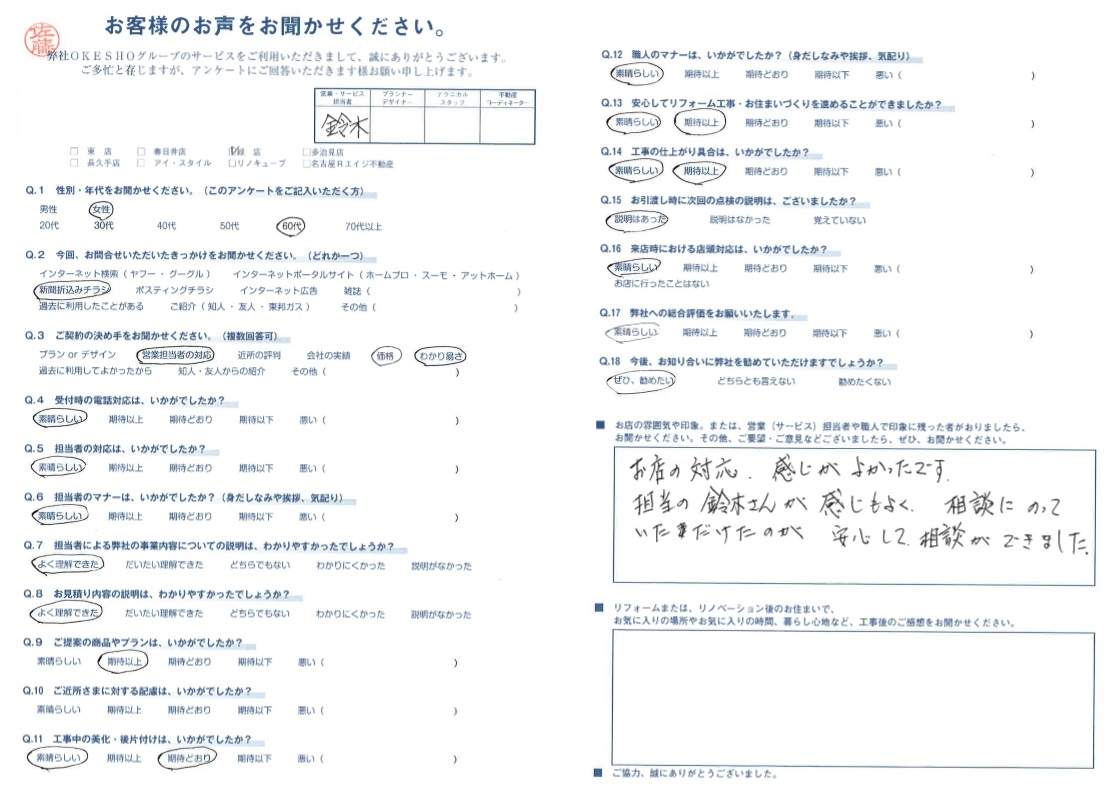 お客様のお声をお聞かせください。
佐藤
弊社OKESHOグループのサービスをご利用いただきまして、誠にありがとうございます。
ご多忙と存じますが、アンケートにご回答いただきます様お願い申し上げます。
営業・サービス担当者 プランナーデザイナー テクニカルスタッフ 不動産コーディネーター
鈴木
□ 東 店 □ 春日井店 店 □多治見店
□ 長久手店 □ アイ・スタイル □リノキューブ □名古屋Rエイジ不動産
Q.1 性別・年代をお聞かせください。（このアンケートをご記入いただく方）
男性 女性
20代 30代 40代 50代 60代 70代以上
Q.2 今回、お問合せいただいたきっかけをお聞かせください。（どれか一つ）
インターネット検索（ ヤフー ・ グーグル ） インターネットポータルサイト（ ホームプロ ・ スーモ ・ アットホーム ）
新聞折込みチラシ ポスティングチラシ インターネット広告 雑誌（ ）
過去に利用したことがある ご紹介（ 知人 ・ 友人 ・ 東邦ガス ） その他（ ）
Q.3 ご契約の決め手をお聞かせください。（複数回答可）
プラン or デザイン 営業担当者の対応 近所の評判 会社の実績 価格 わかり易さ
過去に利用してよかったから 知人・友人からの紹介 その他（ ）
Q.4 受付時の電話対応は、いかがでしたか？
素晴らしい 期待以上 期待どおり 期待以下 悪い（ ）
Q.5 担当者の対応は、いかがでしたか？
素晴らしい 期待以上 期待どおり 期待以下 悪い（ ）
Q.6 担当者のマナーは、いかがでしたか？（身だしなみや挨拶、気配り）
素晴らしい 期待以上 期待どおり 期待以下 悪い（ ）
Q.7 担当者による弊社の事業内容についての説明は、わかりやすかったでしょうか？
よく理解できた だいたい理解できた どちらでもない わかりにくかった 説明がなかった
Q.8 お見積り内容の説明は、わかりやすかったでしょうか？
よく理解できた だいたい理解できた どちらでもない わかりにくかった 説明がなかった
Q.9 ご提案の商品やプランは、いかがでしたか？
素晴らしい 期待以上 期待どおり 期待以下 悪い（ ）
Q.10 ご近所さまに対する配慮は、いかがでしたか？
素晴らしい 期待以上 期待どおり 期待以下 悪い（ ）
Q.11 工事中の美化・後片付けは、いかがでしたか？
素晴らしい 期待以上 期待どおり 期待以下 悪い（ ）
Q.12 職人のマナーは、いかがでしたか？（身だしなみや挨拶、気配り）
素晴らしい 期待以上 期待どおり 期待以下 悪い（ ）
Q.13 安心してリフォーム工事・お住まいづくりを進めることができましたか？
素晴らしい 期待以上 期待どおり 期待以下 悪い（ ）
Q.14 工事の仕上がり具合は、いかがでしたか？
素晴らしい 期待以上 期待どおり 期待以下 悪い（ ）
Q.15 お引渡し時に次回の点検の説明は、ございましたか？
説明はあった 説明はなかった 覚えていない
Q.16 来店時における店頭対応は、いかがでしたか？
素晴らしい 期待以上 期待どおり 期待以下 悪い（ ）
お店に行ったことはない
Q.17 弊社への総合評価をお願いいたします。
素晴らしい 期待以上 期待どおり 期待以下 悪い（ ）
Q.18 今後、お知り合いに弊社を勧めていただけますでしょうか？
ぜひ、勧めたい どちらとも言えない 勧めたくない
■ お店の雰囲気や印象。または、営業（サービス）担当者や職人で印象に残った者がおりましたら、
お聞かせください。その他、ご要望・ご意見などございましたら、ぜひ、お聞かせください。
お店の対応、感じがよかったです。
担当の鈴木さんが感じもよく、相談にのって
いただけたのが 安心して、相談ができました。
■ リフォームまたは、リノベーション後のお住まいで、
お気に入りの場所やお気に入りの時間、暮らし心地など、工事後のご感想をお聞かせください。
■ ご協力、誠にありがとうございました。